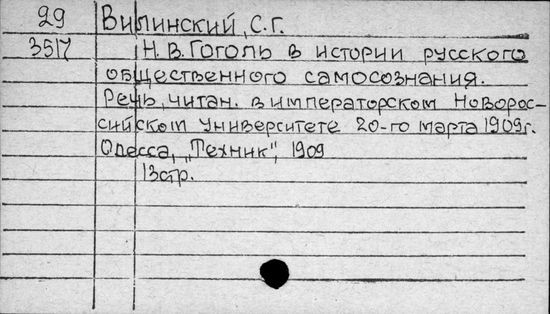 29 Вилинский, С.Г.
3517 Н.В.Гоголь в истории русского
общественного самосознания.
Речь, читан. в императорском Новорос-
сийском университете 20-го марта 1909г.
Одесса, „Техник", 1909
13стр.